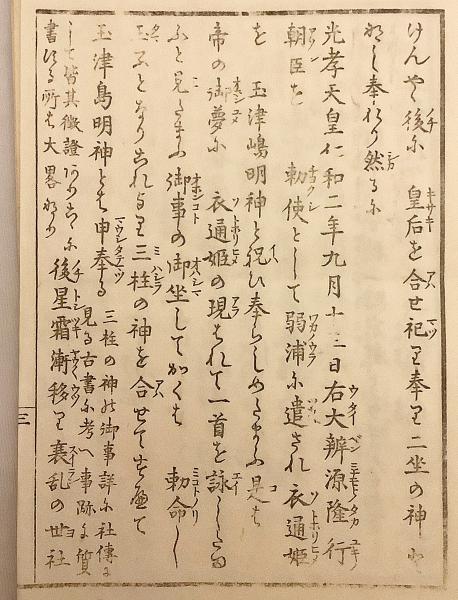 けんや 後に 皇后を合せ祀り奉り二坐の神と
なし奉れり然るに
光孝天皇仁和二年九月十三日右大辨源隆行
朝臣を 勅使として弱浦に遣され衣通姫
を 玉津嶋明神と祝ひ奉らしめたまふ是は
帝の御夢に 衣通姫の現はれて一首を詠したま
ふと見たまふ御事の御坐してかくも 勅命し
玉ふとなりこれより三柱の神を合せてすへて
玉津島明神とは申奉る 三柱の神の御事詳に社傳に
見る古書に考へ事跡に質
して皆其徴證
書する所は大畧なり 後星霜漸移り衰乱の世社
三